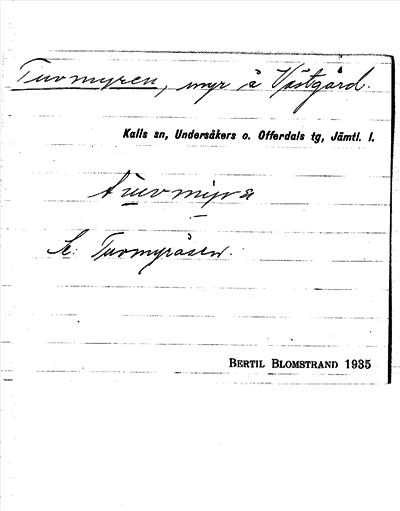 Tuvmyren, myr å Västgård.
Kalls sn, Undersåkers o. Offerdals tg, Jämtl. l.
Se: Tuvmyråsen.
BERTIL BLOMSTRAND 1935